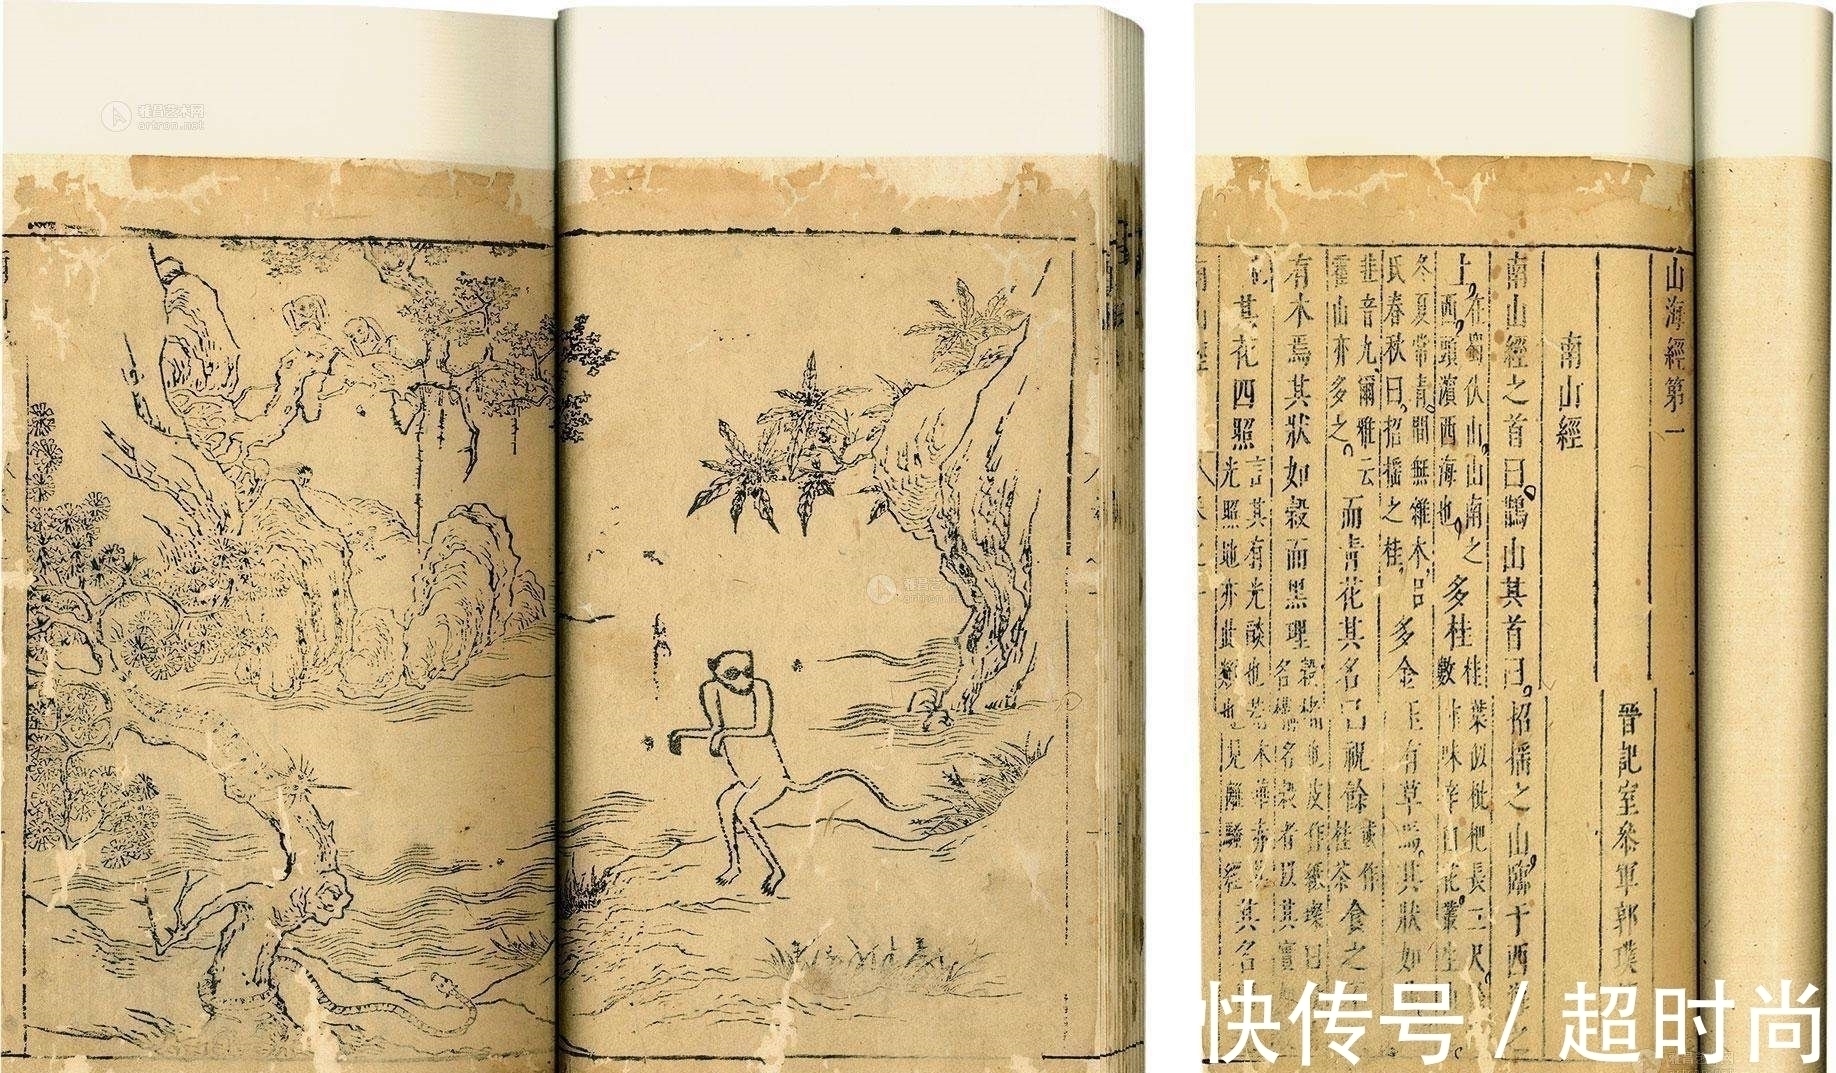 雅昌艺术网
artron.net
雅昌艺术网
山海經第一
晉記室參軍郭璞
南山經
南山經之首曰鵲山其首曰招搖之山臨于西
上
在蜀伏山山南之
西頭濵西海也
多桂
桂葉似枇杷長二尺
數寸味辛白花叢生
冬夏常青間無雜木呂
氏春秋曰招搖之桂
多金玉有草焉其狀如
韭音九爾雅云
霍山亦多之
而青花其名曰祝餘
或作
桂荼
食之
有木焉其狀如榖而黑理
榖楮也皮作紙璨曰
名構名榖者以其實
其花四照
言其有光燄也若木華赤其
光照地亦此類也見離騷經
其名
快传号 / 超时尚